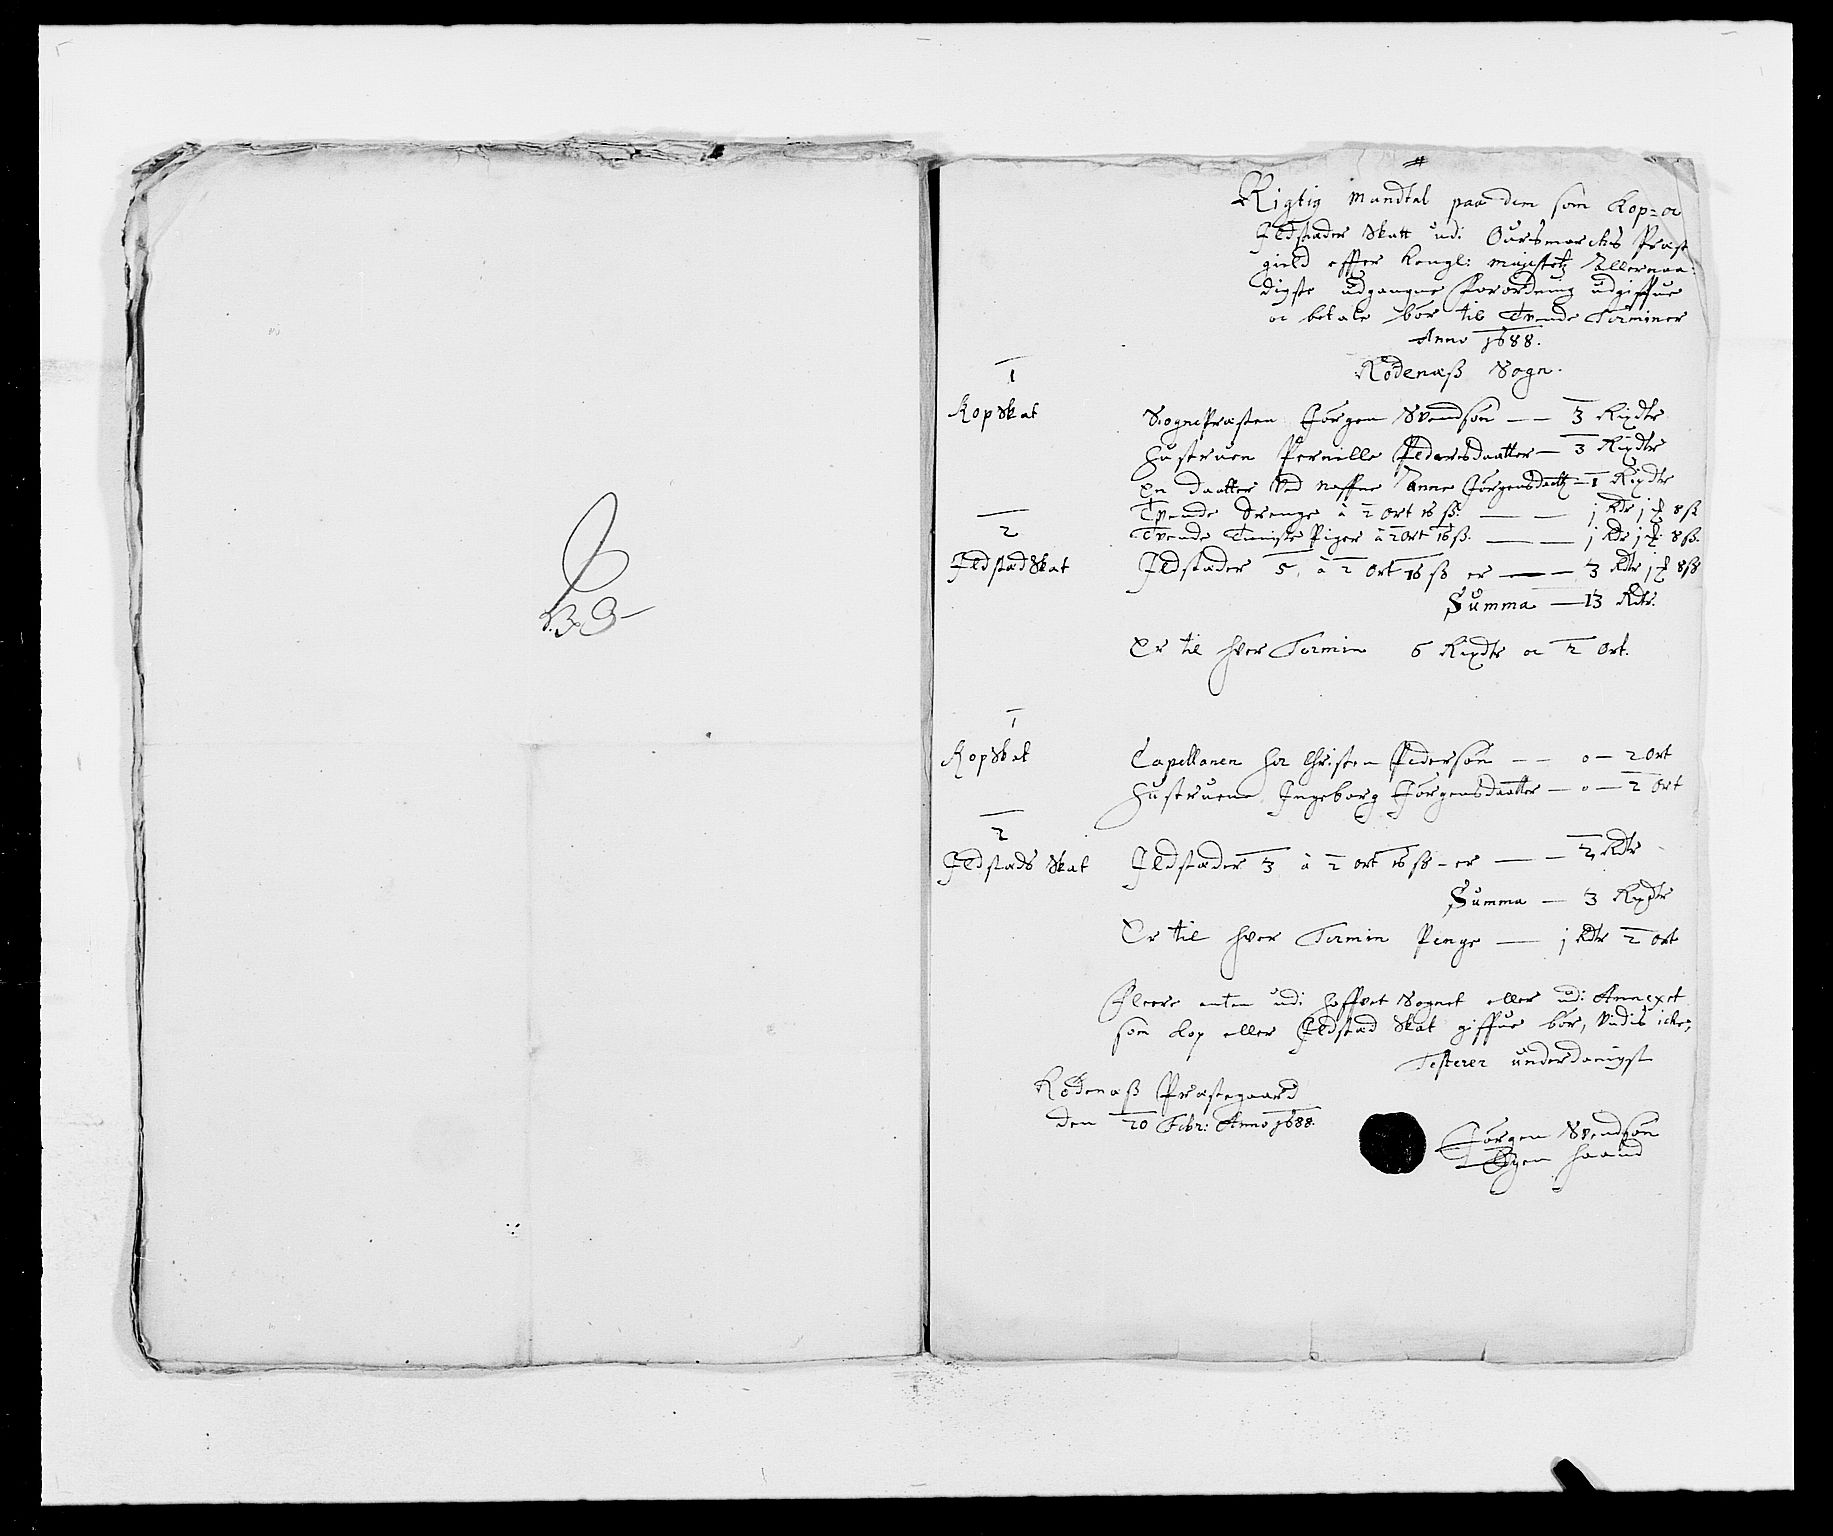 Rigtig Mandtal paa dem som Kop- oc
Ildstæder Skatt udi Oursmarckes Præst
gield effter Kongl: Mayestetz Allernaa-
digste udgangne Forordning udgiffue
oc betale bør til Tvende Terminer
Anno 1688.
Rødenæß Sogn.
1
KopSkat
SognePræsten Jørgen Svendsøn — 3 Rixdr
Hustruen Pernille Pedersdaatter — 3 Rixdr
En daatter ved naffne Anne Jørgensdaatt — 1 Rixdr
Tvende Drenge à 2 Ort 16 ß. — 1 Rdr 1 8ß
2
Tvende Tieniste Piger à 2 Ort 16 ß. — 1 Rdr 1 8ß.
IldstædSkat
Ildstæder 5, à 2 Ort 16 ß er — 3 Rdr 1 8ß
Summa — 13 Rdr.
Er til hver Termin 6 Rixdr oc 2 Ort.
1
KopSkat
Capellanen Hr Christen Pedersøn — o — 2 Ort
Hustruene Ingeborg Jørgensdaatter — o — 2 Ort
2
Ildstæds Skat
Ildstæder 3 à 2 Ort 16 ß - er — 2 Rdr
Summa — 3 Rixdr
Er til hver Termin Penge — 1 Rdr 2 Ort
Fleere enten udi Hoffvet Sognet eller udi Annexet
som Kop eller Ildstæd Skat giffue bør, vidis icke,
Testerer underdanigst
Rødenæß Præstegaard
den 20 Febr: Anno 1688.
Jørgen Svendsøn
Egen Haand